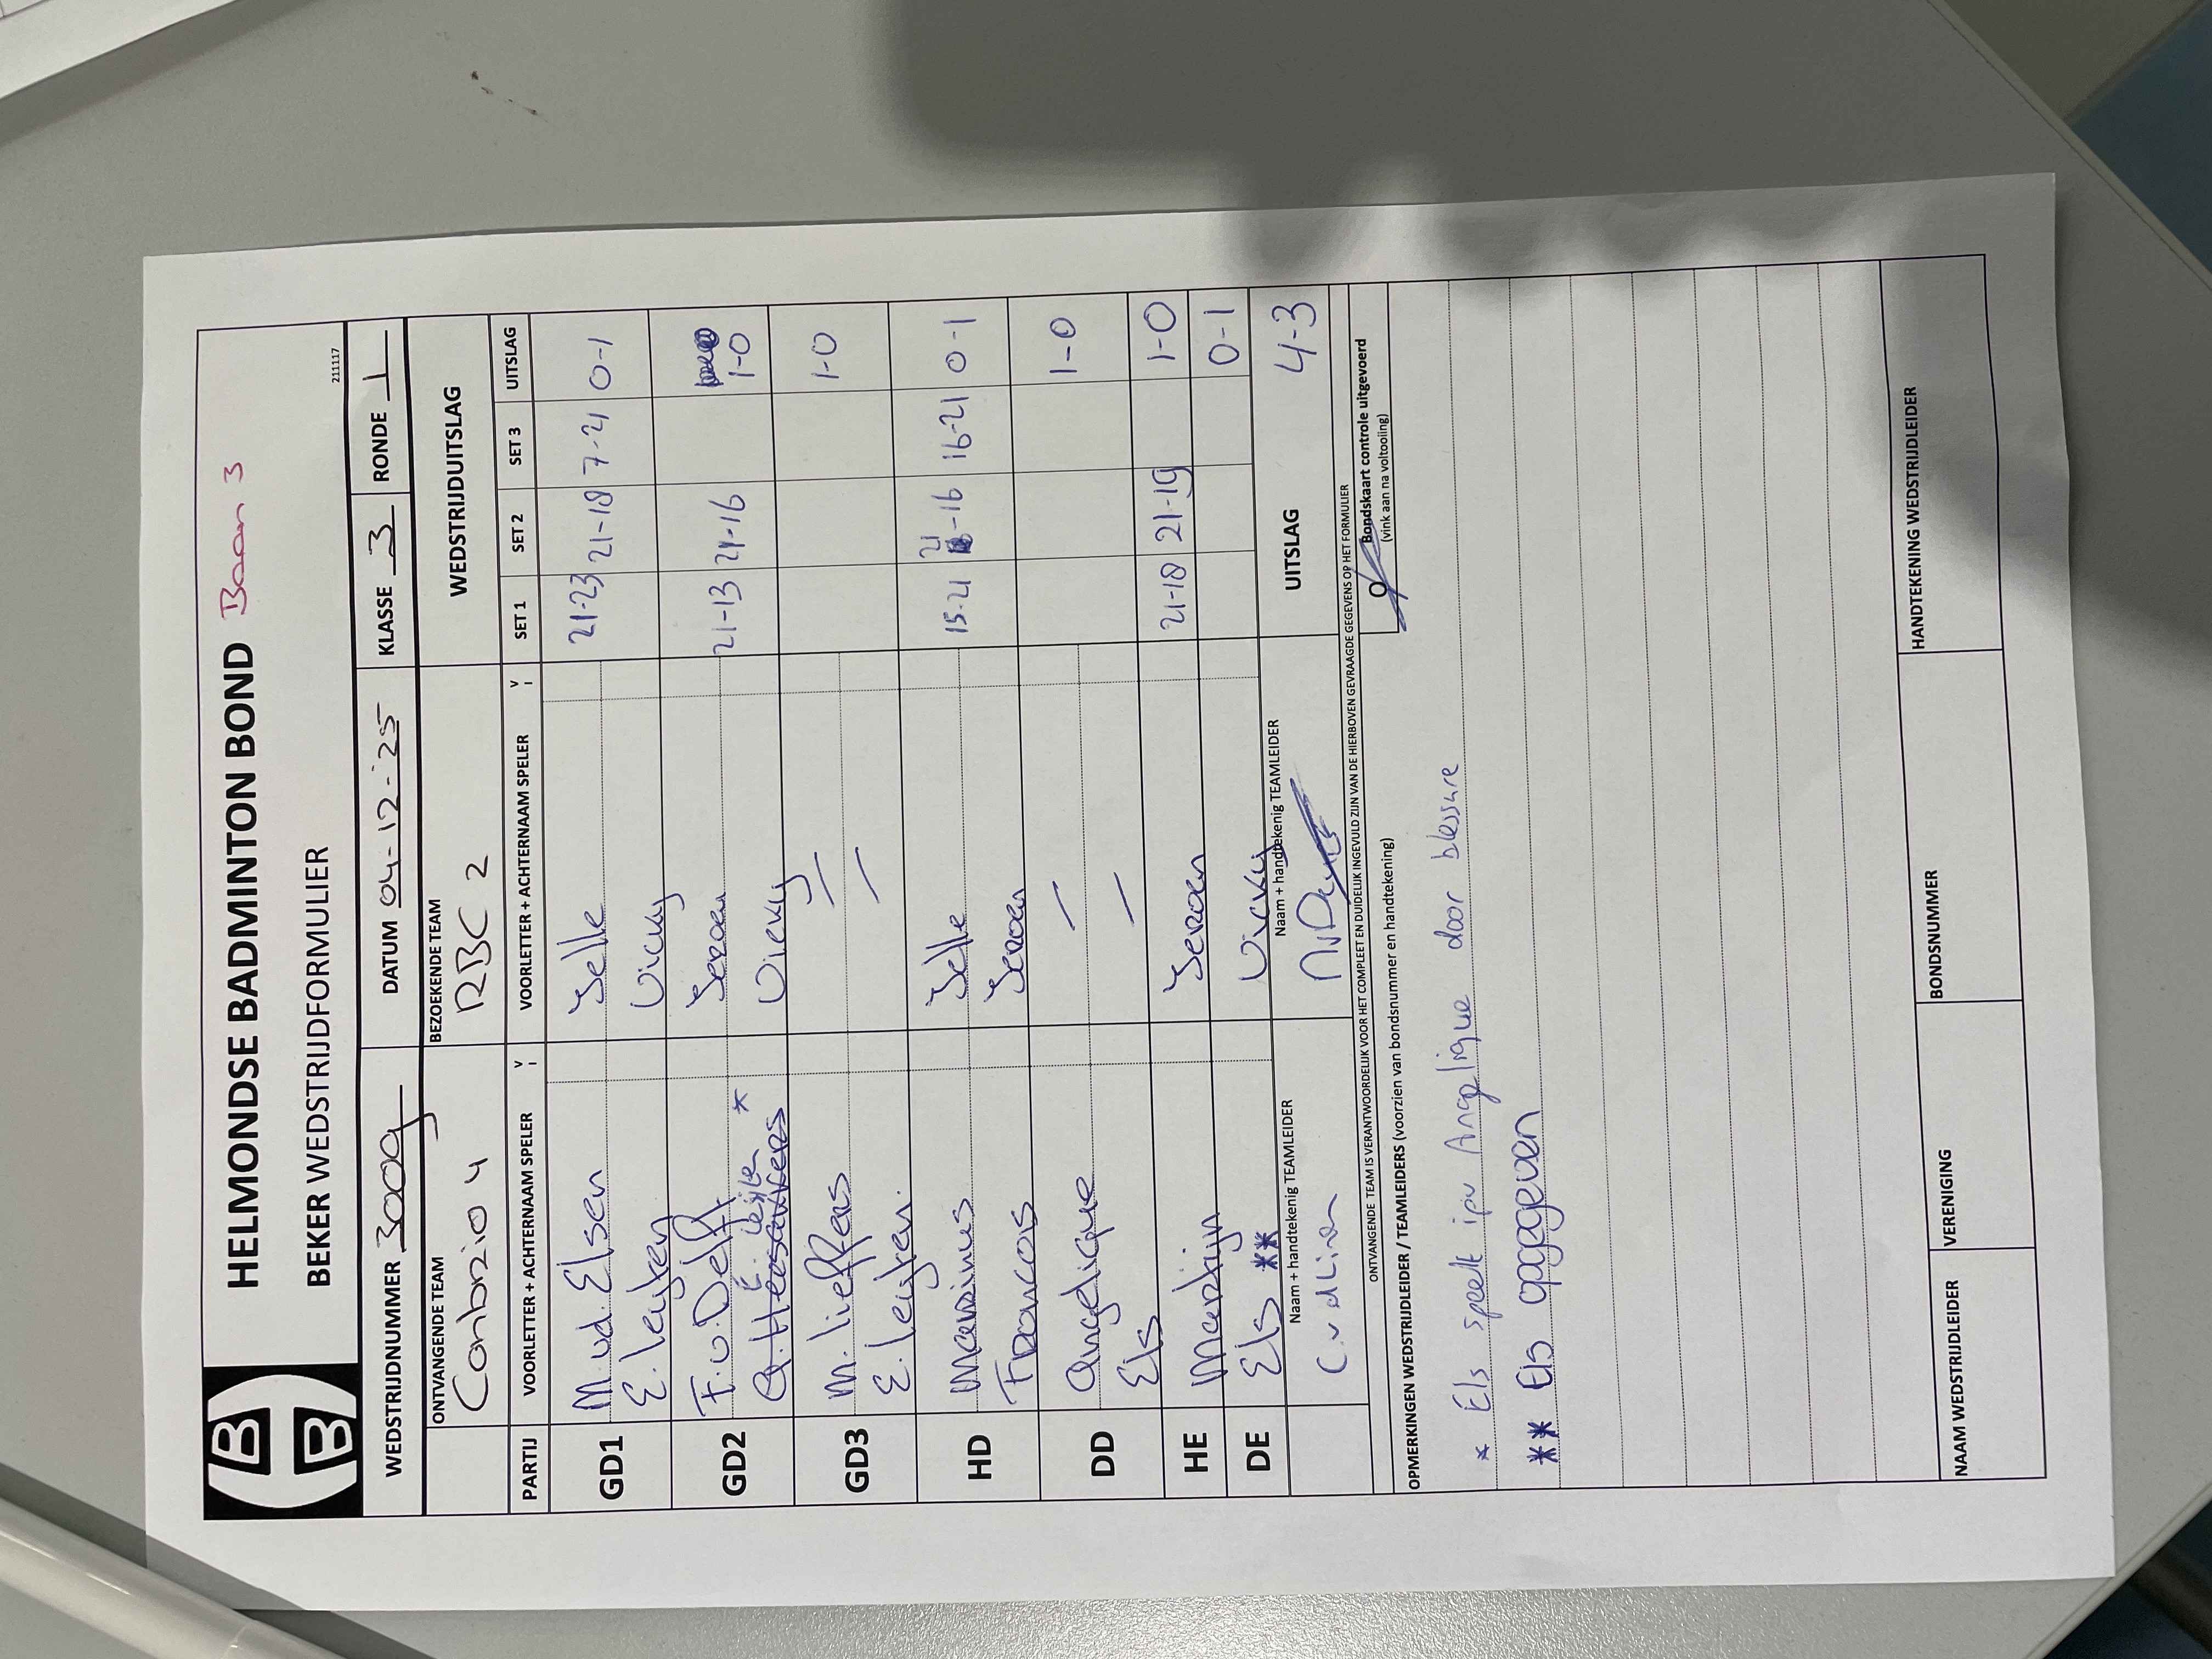 HELMONDSE BADMINTON BOND Baan 3
BEKER WEDSTRIJDFORMULIER
211117
WEDSTRIJDNUMMER 3009 DATUM 04-12-'25 KLASSE 3 RONDE 1
ONTVANGENDE TEAM BEZOEKENDE TEAM WEDSTRIJDUITSLAG
Conbrio 4 RBC 2
PARTIJ VOORLETTER + ACHTERNAAM SPELER V I VOORLETTER + ACHTERNAAM SPELER V I SET 1 SET 2 SET 3 UITSLAG
GD1 M. vd. Elsen Jelle 21-23 21-18 7-21 0-1
E. Leijten Vicky
GD2 F. v. Delft Jeroen 21-13 21-16 1-0
E. Leijten * Vicky
GD3 M. Lieffers — 1-0
E. Leijten. —
HD Marinus Jelle 15-21 21-16 16-21 0-1
Francois Jeroen
DD Angelique — 1-0
Els —
HE Martijn Jeroen 21-18 21-19 1-0
DE Els ** Vicky 0-1
Naam + handtekenig TEAMLEIDER Naam + handtekenig TEAMLEIDER UITSLAG 4-3
C. vd Linden
ONTVANGENDE TEAM IS VERANTWOORDELIJK VOOR HET COMPLEET EN DUIDELIJK INGEVULD ZIJN VAN DE HIERBOVEN GEVRAAGDE GEGEVENS OP HET FORMULIER
OPMERKINGEN WEDSTRIJDLEIDER / TEAMLEIDERS (voorzien van bondsnummer en handtekening)
O Bondskaart controle uitgevoerd
(vink aan na voltooling)
* Els speelt ipv Angelique door blessure
** Els opgegeven
NAAM WEDSTRIJDLEIDER VERENIGING BONDSNUMMER HANDTEKENING WEDSTRIJDLEIDER